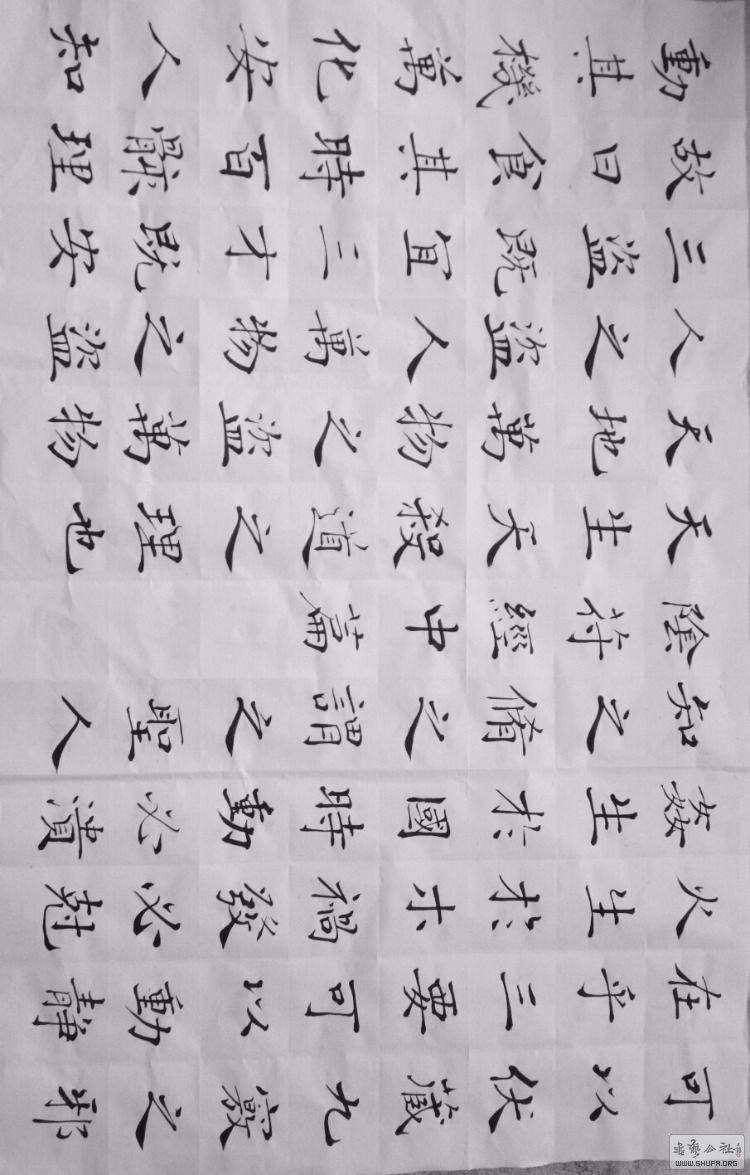 可以伏藏九竅之邪
在乎三要可以動靜
火生於木禍發必尅
姦生於國時動必潰
知之脩之謂之聖人
陰符經中篇
天生天殺道之理也
天地萬物之盜萬物
人之盜人萬物之盜
三盜既宜三才既安
故曰食其時百骸理
動其機萬化安人知
書藝公社
WWW.SHUFA.ORG